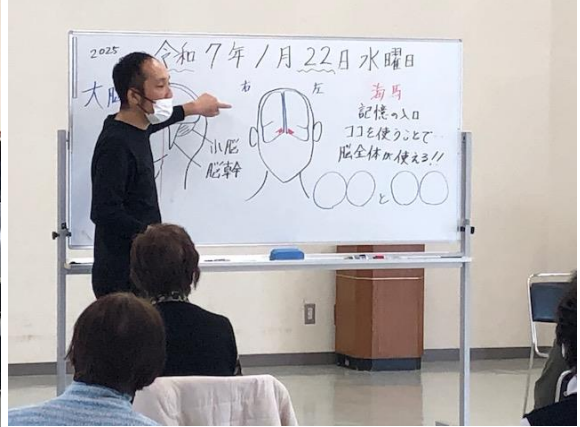 2025 令和7年1月22日水曜日
大脳
小脳
脳幹
右 左
海馬
記憶の入口
ココを使うことで‥
脳全体が使える!!
〇〇と〇〇